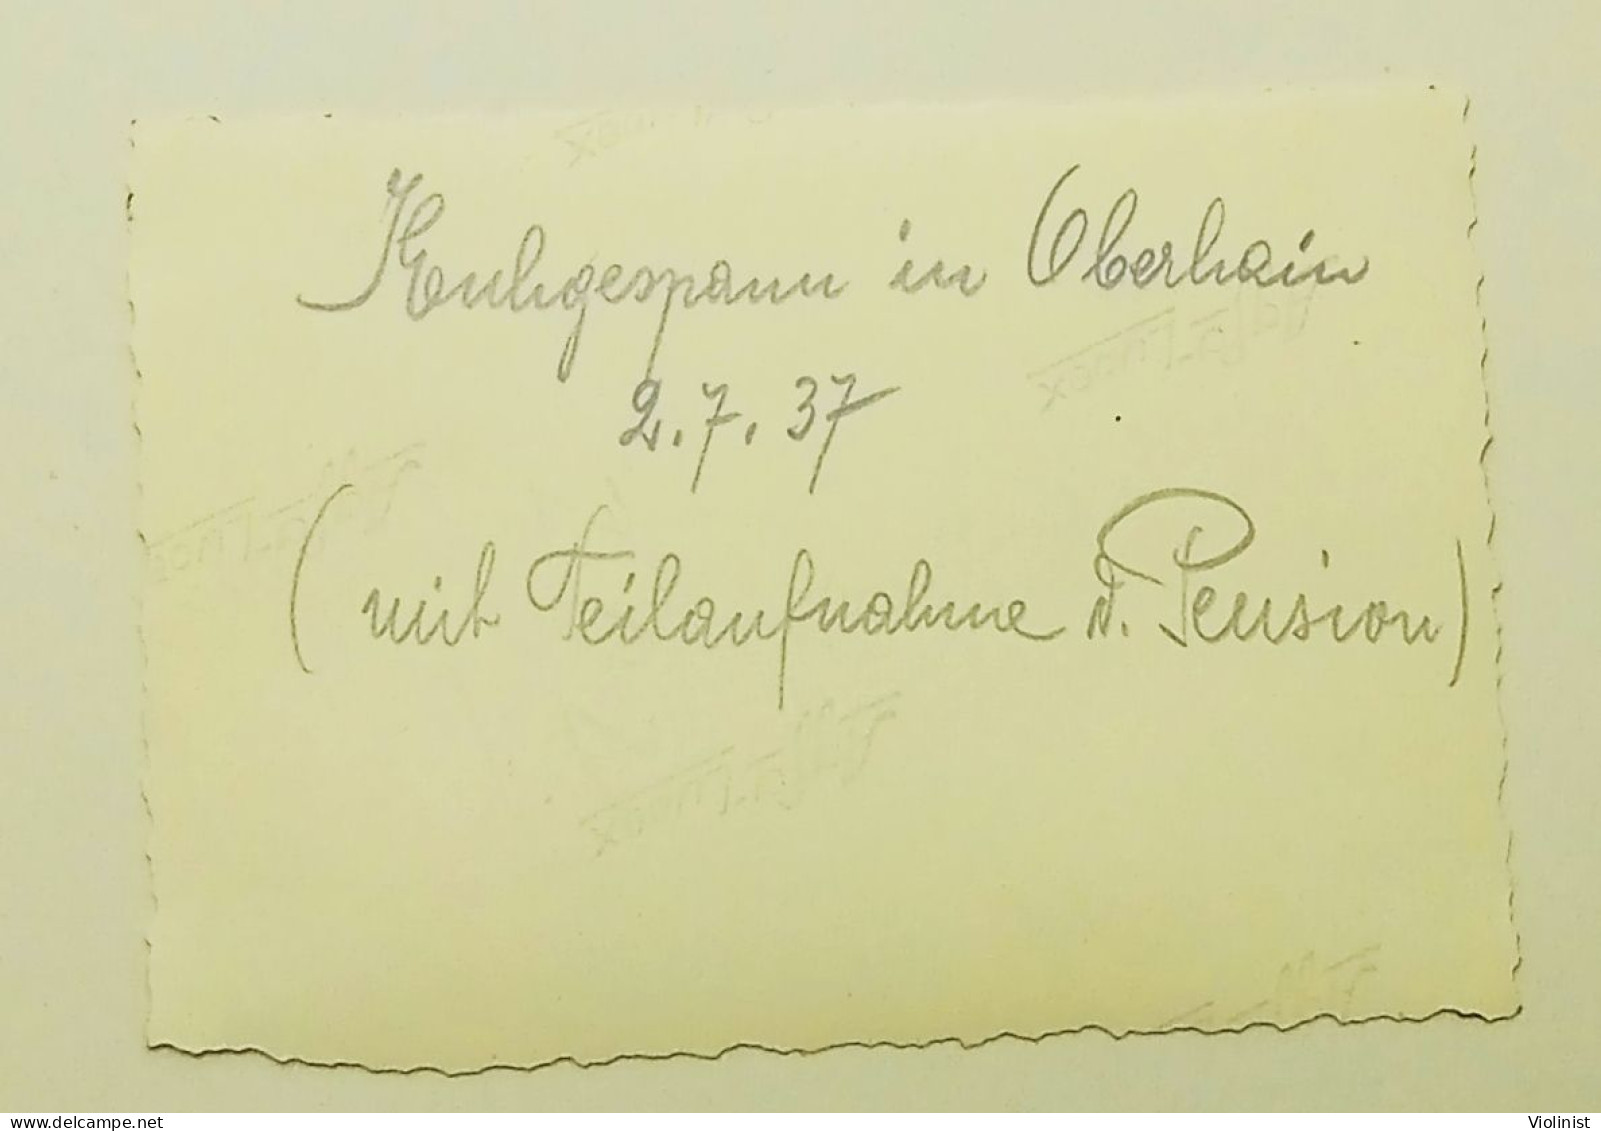 Kuhgespann in Oberhain
2.7.37
(mit Teilaufnahme d. Pension)
delcampe.net
Violinist